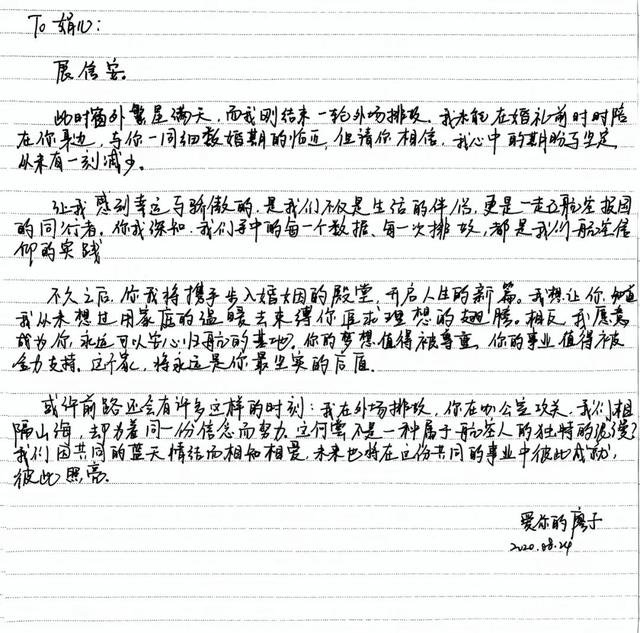 To 娟心:
展信安。
此时窗外繁星满天，而我刚结束一轮外场排故。我未能在婚礼前时时陪
在你身边，与你一同细数婚期的临近，但请你相信，我心中的期盼与坚定
从未有一刻减少。
让我感到幸运与骄傲的，是我们不仅是生活的伴侣，更是一走航空报国
的同行者。你我深知，我们手中的每一个数据、每一次排故，都是我们航空信
仰的实践
不久之后，你我将携手步入婚姻的殿堂，开启人生的新篇。我想让你知道
我从未想过用家庭的温暖去束缚你追求理想的翅膀。相反，我愿意
成为你永远可以安心归航的基地，你的梦想值得被尊重，你的事业值得被
全力支持。这个家，将永远是你最坚实的后盾。
或许前路还会有许多这样的时刻：我在外场排故，你在办公室攻关，我们相
隔山海，却为着同一份信念而努力，这何尝不是一种属于航空人的独特的浪漫？
我们因共同的蓝天情结而相知相爱，未来也将在这份共同的事业中彼此成就，
彼此照亮。
爱你的廖子
2020.08.24